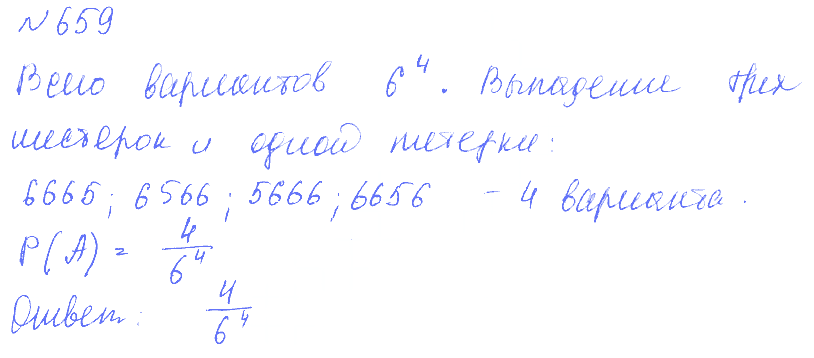 №659
Всего вариантов 6^4. Выпадение трех
шестерок и одной пятерки:
6665; 6566; 5666; 6656 - 4 варианта.
P(A) = 4/6^4
Ответ: 4/6^4